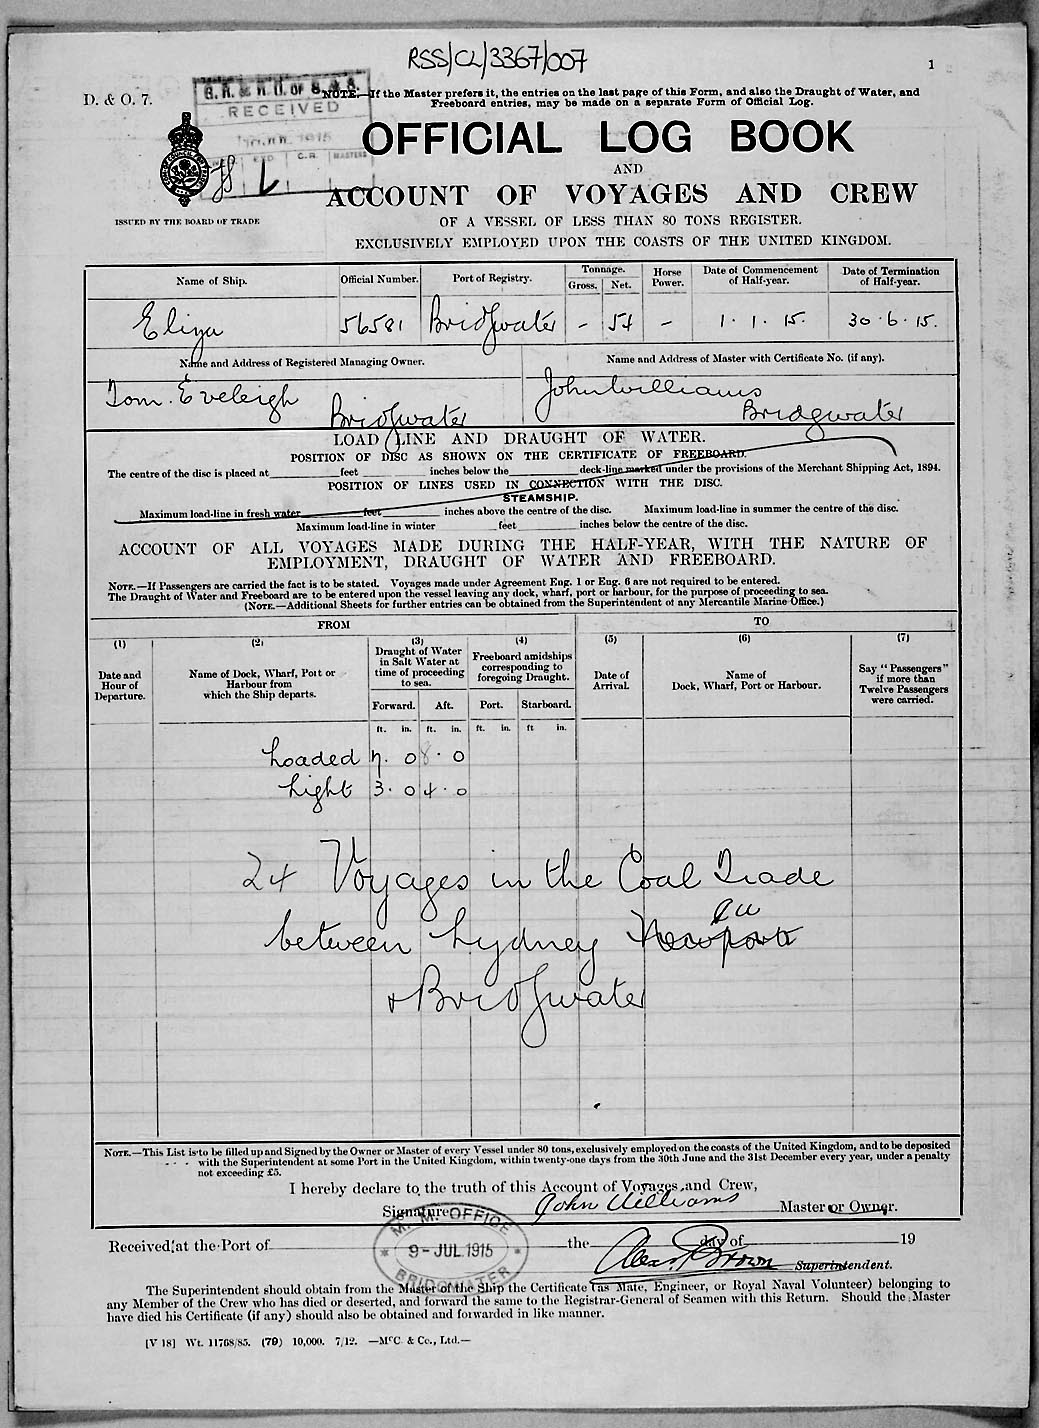 RSS/CL/3367/007
1
D. & O. 7.
G. R. & R. O. OF S. & S.
RECEIVED
1915
C.R. MASTERS
NOTE.—If the Master prefers it, the entries on the last page of this Form, and also the Draught of Water, and
Freeboard entries, may be made on a separate Form of Official Log.
OFFICIAL LOG BOOK
AND
ACCOUNT OF VOYAGES AND CREW
ISSUED BY THE BOARD OF TRADE
OF A VESSEL OF LESS THAN 80 TONS REGISTER.
EXCLUSIVELY EMPLOYED UPON THE COASTS OF THE UNITED KINGDOM.
Name of Ship. Official Number. Port of Registry. Tonnage. Gross. Net. Horse Power. Date of Commencement of Half-year. Date of Termination of Half-year.
Eliza 56581 Bridgwater - 54 - 1.1.15. 30.6.15.
Name and Address of Registered Managing Owner. Name and Address of Master with Certificate No. (if any).
Tom. Eveleigh John Williams
Bridgwater Bridgwater
LOAD LINE AND DRAUGHT OF WATER.
POSITION OF DISC AS SHOWN ON THE CERTIFICATE OF FREEBOARD.
The centre of the disc is placed at feet inches below the deck-line marked under the provisions of the Merchant Shipping Act, 1894.
POSITION OF LINES USED IN CONNECTION WITH THE DISC.
STEAMSHIP.
Maximum load-line in fresh water feet inches above the centre of the disc. Maximum load-line in summer the centre of the disc.
Maximum load-line in winter feet inches below the centre of the disc.
ACCOUNT OF ALL VOYAGES MADE DURING THE HALF-YEAR, WITH THE NATURE OF
EMPLOYMENT, DRAUGHT OF WATER AND FREEBOARD.
NOTE.—If Passengers are carried the fact is to be stated. Voyages made under Agreement Eng. 1 or Eng. 6 are not required to be entered.
The Draught of Water and Freeboard are to be entered upon the vessel leaving any dock, wharf, port or harbour, for the purpose of proceeding to sea.
(NOTE.—Additional Sheets for further entries can be obtained from the Superintendent of any Mercantile Marine Office.)
FROM TO
(1) (2) (3) (4) (5) (6) (7)
Date and Hour of Departure.
Name of Dock, Wharf, Port or Harbour from which the Ship departs.
Draught of Water in Salt Water at time of proceeding to sea.
Freeboard amidships corresponding to foregoing Draught.
Date of Arrival.
Name of Dock, Wharf, Port or Harbour.
Say "Passengers" if more than Twelve Passengers were carried.
Forward. Aft. Port. Starboard.
ft. in. ft. in. ft. in. ft in.
Loaded 7. 0 8. 0
Light 3. 0 4. 0
24 Voyages in the Coal Trade
between Lydney Newport
& Bridgwater
NOTE.—This List is to be filled up and Signed by the Owner or Master of every Vessel under 80 tons, exclusively employed on the coasts of the United Kingdom, and to be deposited
with the Superintendent at some Port in the United Kingdom, within twenty-one days from the 30th June and the 31st December every year, under a penalty
not exceeding £5.
I hereby declare to the truth of this Account of Voyages and Crew,
Signature John Williams Master or Owner.
M. M. OFFICE
9 - JUL 1915
BRIDGWATER
Received at the Port of the day of 19
Alex P Brown Superintendent.
The Superintendent should obtain from the Master of the Ship the Certificate (as Mate, Engineer, or Royal Naval Volunteer) belonging to
any Member of the Crew who has died or deserted, and forward the same to the Registrar-General of Seamen with this Return. Should the Master
have died his Certificate (if any) should also be obtained and forwarded in like manner.
[V 18] Wt. 11768/85. (79) 10,000. 7/12. —McC. & Co., Ltd.—